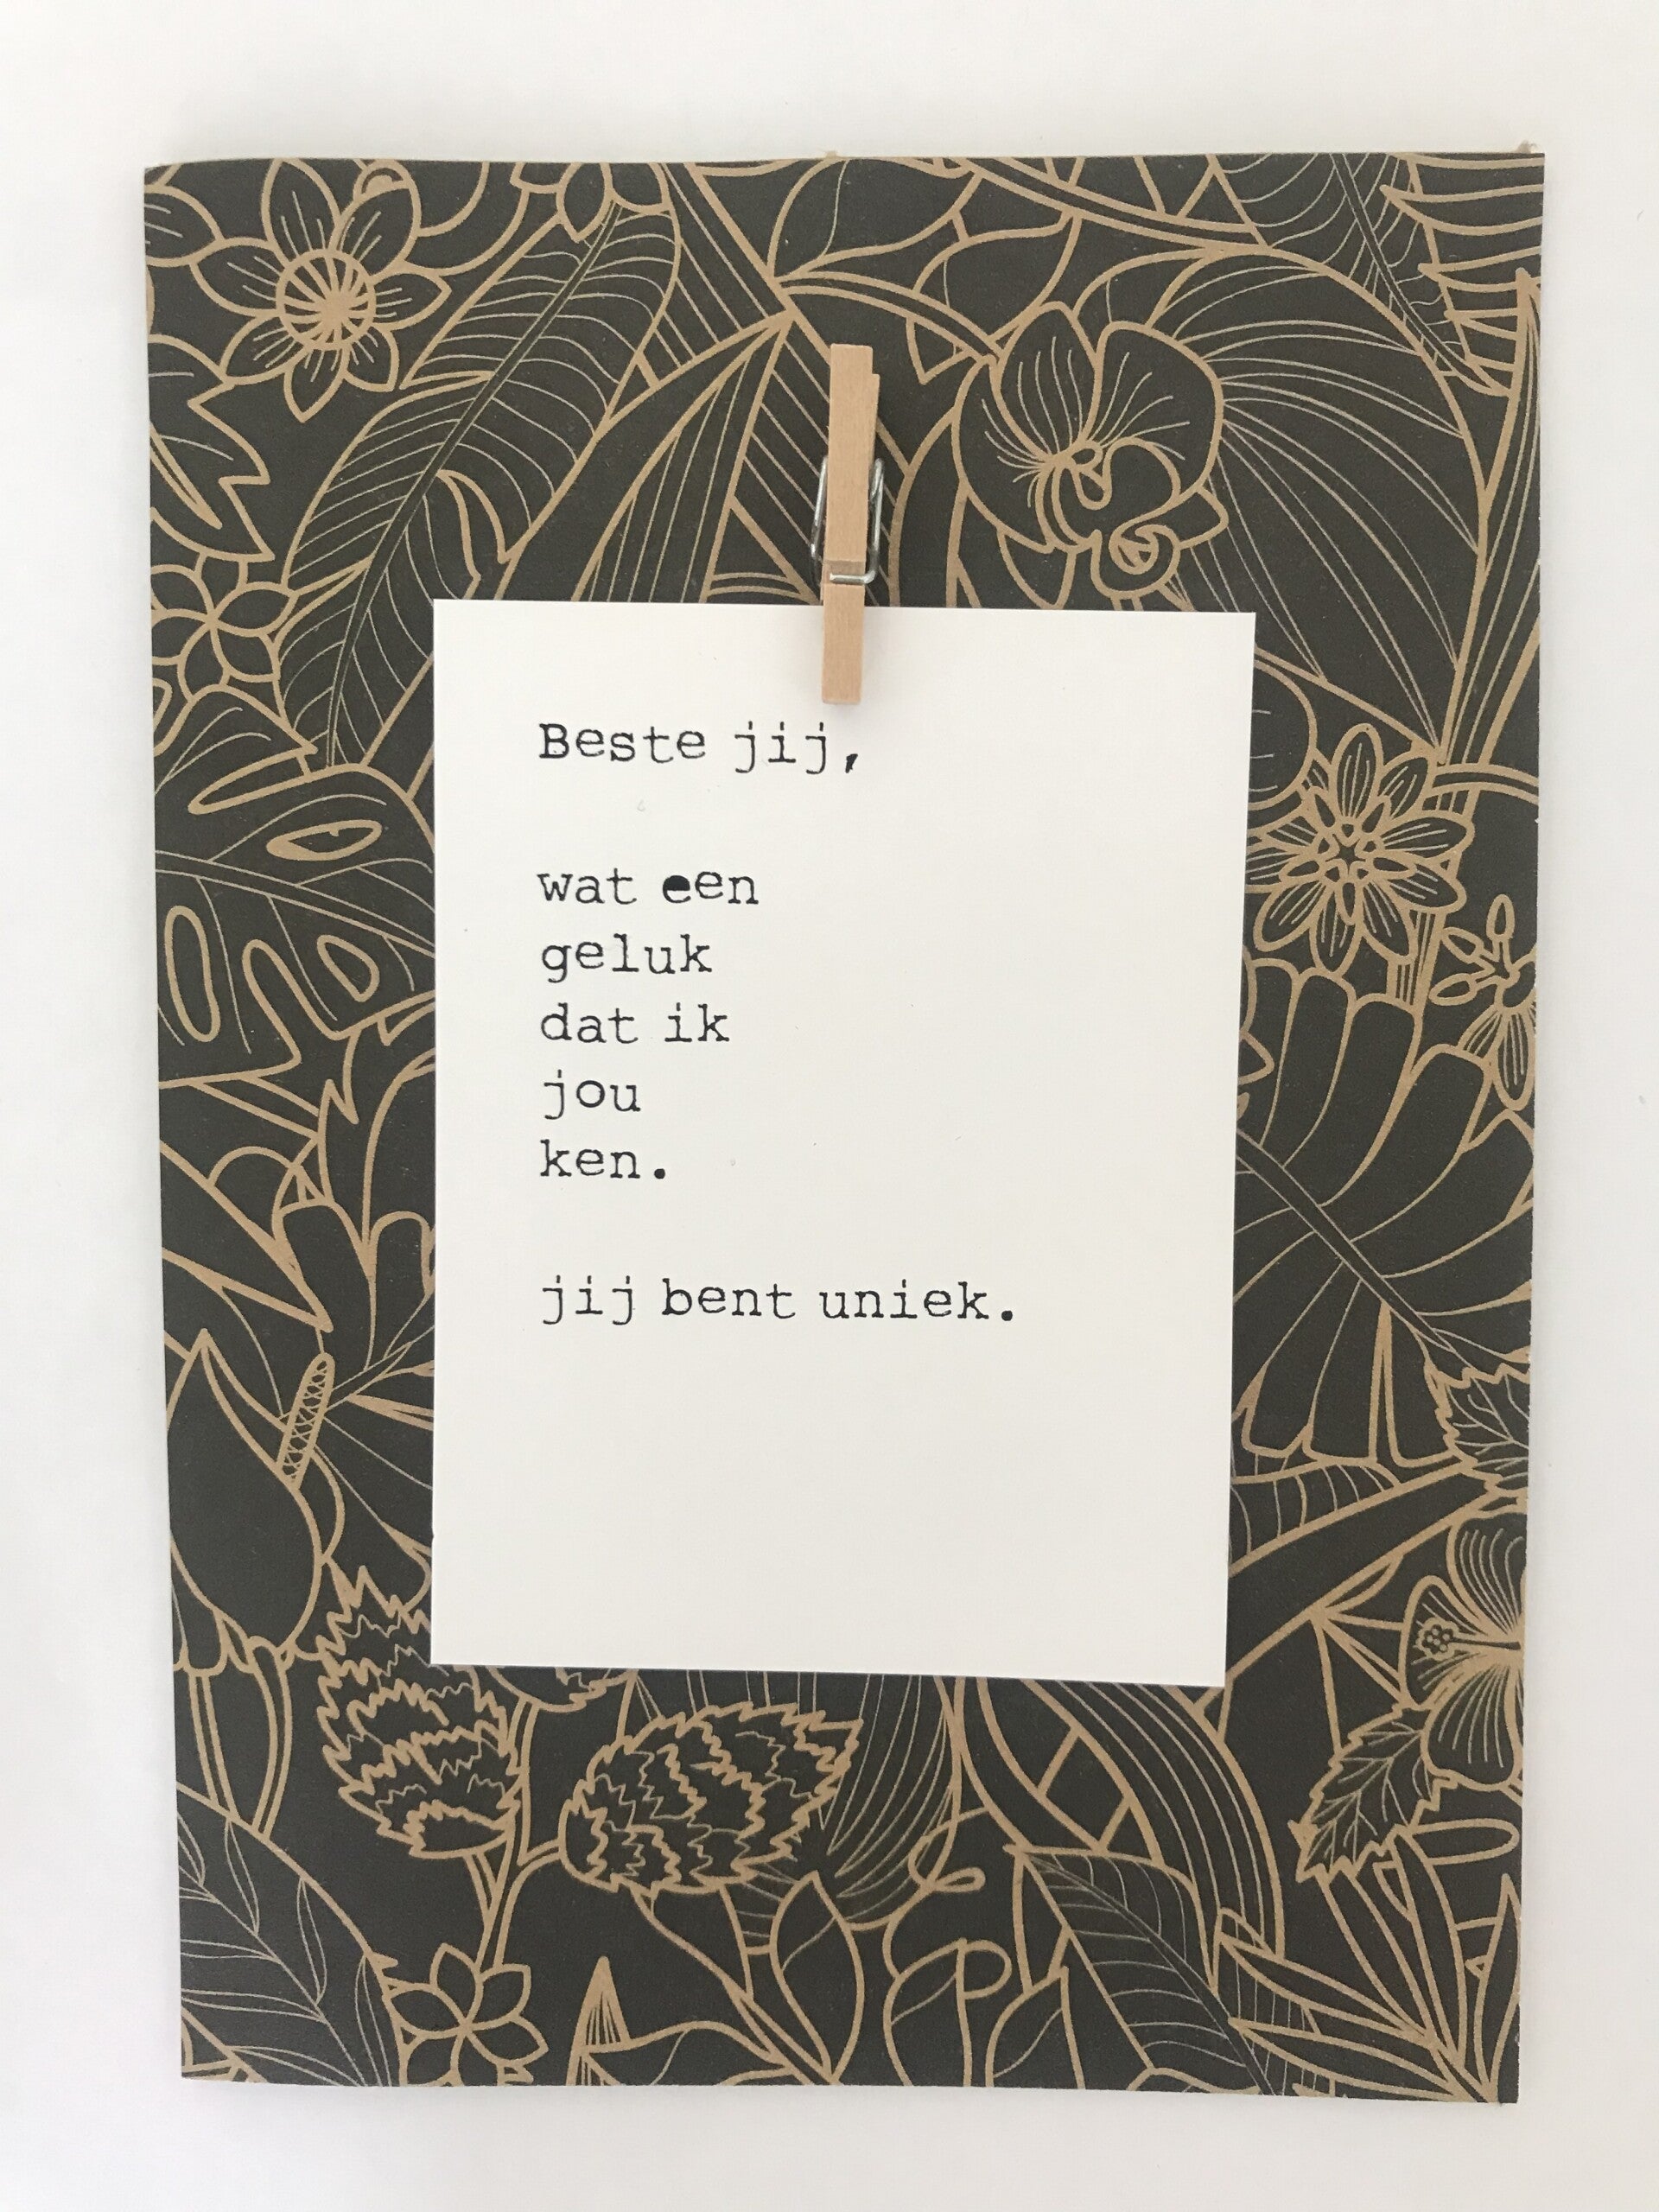 Beste jij,
wat een
geluk
dat ik
jou
ken.
jij bent uniek.